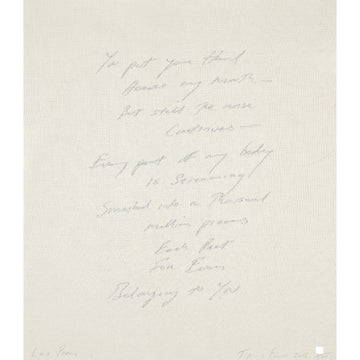 You put your Hand
Across my mouth —
But still the noise
Continues —
Every part of my body
is Screaming
Smashed into a Thousand
million pieces
Each Part
For Ever
Belonging to You
Love Poem